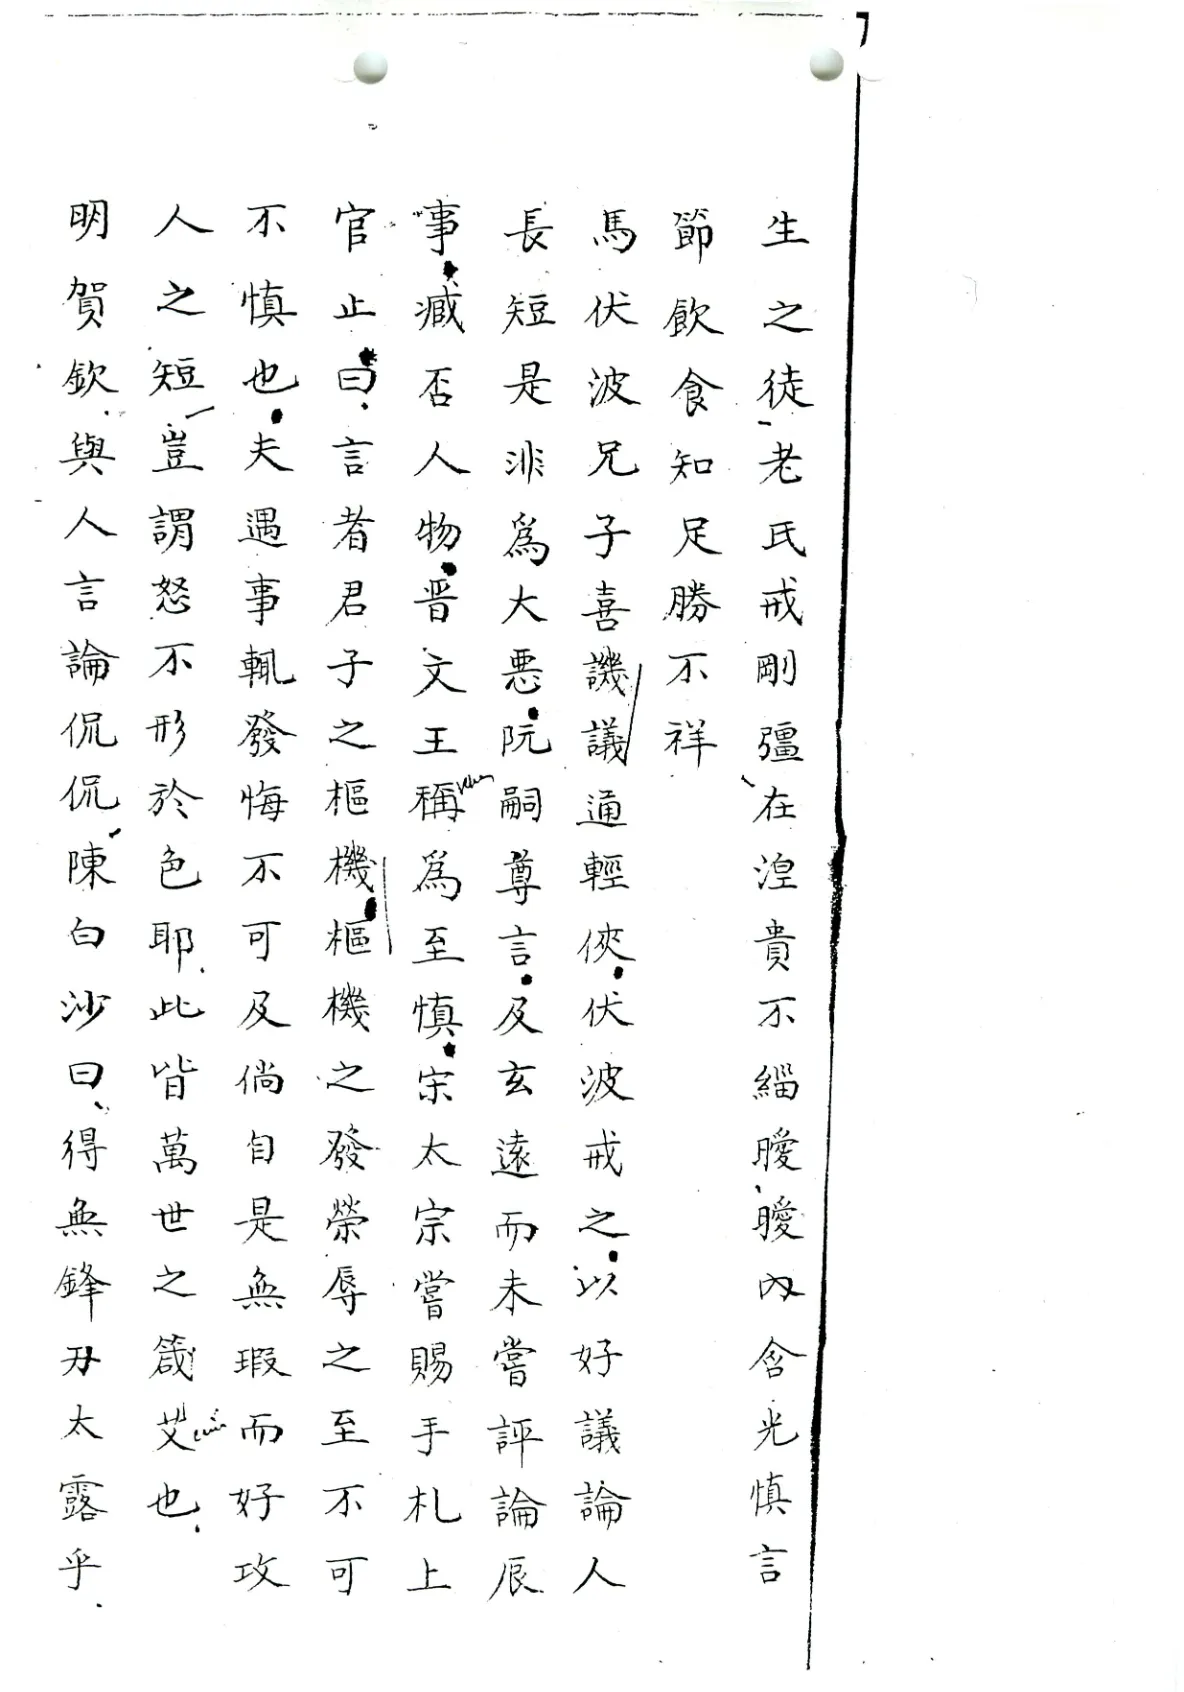 生之徒老氏戒剛彊在湼貴不緇曖曖內含光慎言
節飲食知足勝不祥
馬伏波兄子喜譏議通輕俠伏波戒之以好議論人
長短是非爲大悪阮嗣尊言及玄遠而未嘗評論辰
事臧否人物晋文王稱爲至慎宋太宗嘗賜手札上
官止曰言者君子之樞機樞機之發榮辱之至不可
不慎也夫遇事輒發悔不可及倘自是無瑕而好攻
人之短豈謂怒不形於色耶此皆萬世之箴艾也
明賀欽與人言論侃侃陳白沙曰得無鋒刃太露乎